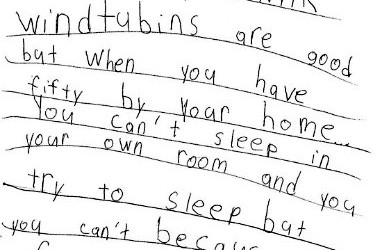 windtubins are good
but when you have
fifty by your home...
You can't sleep in
your own room and you
try to sleep but
you can't